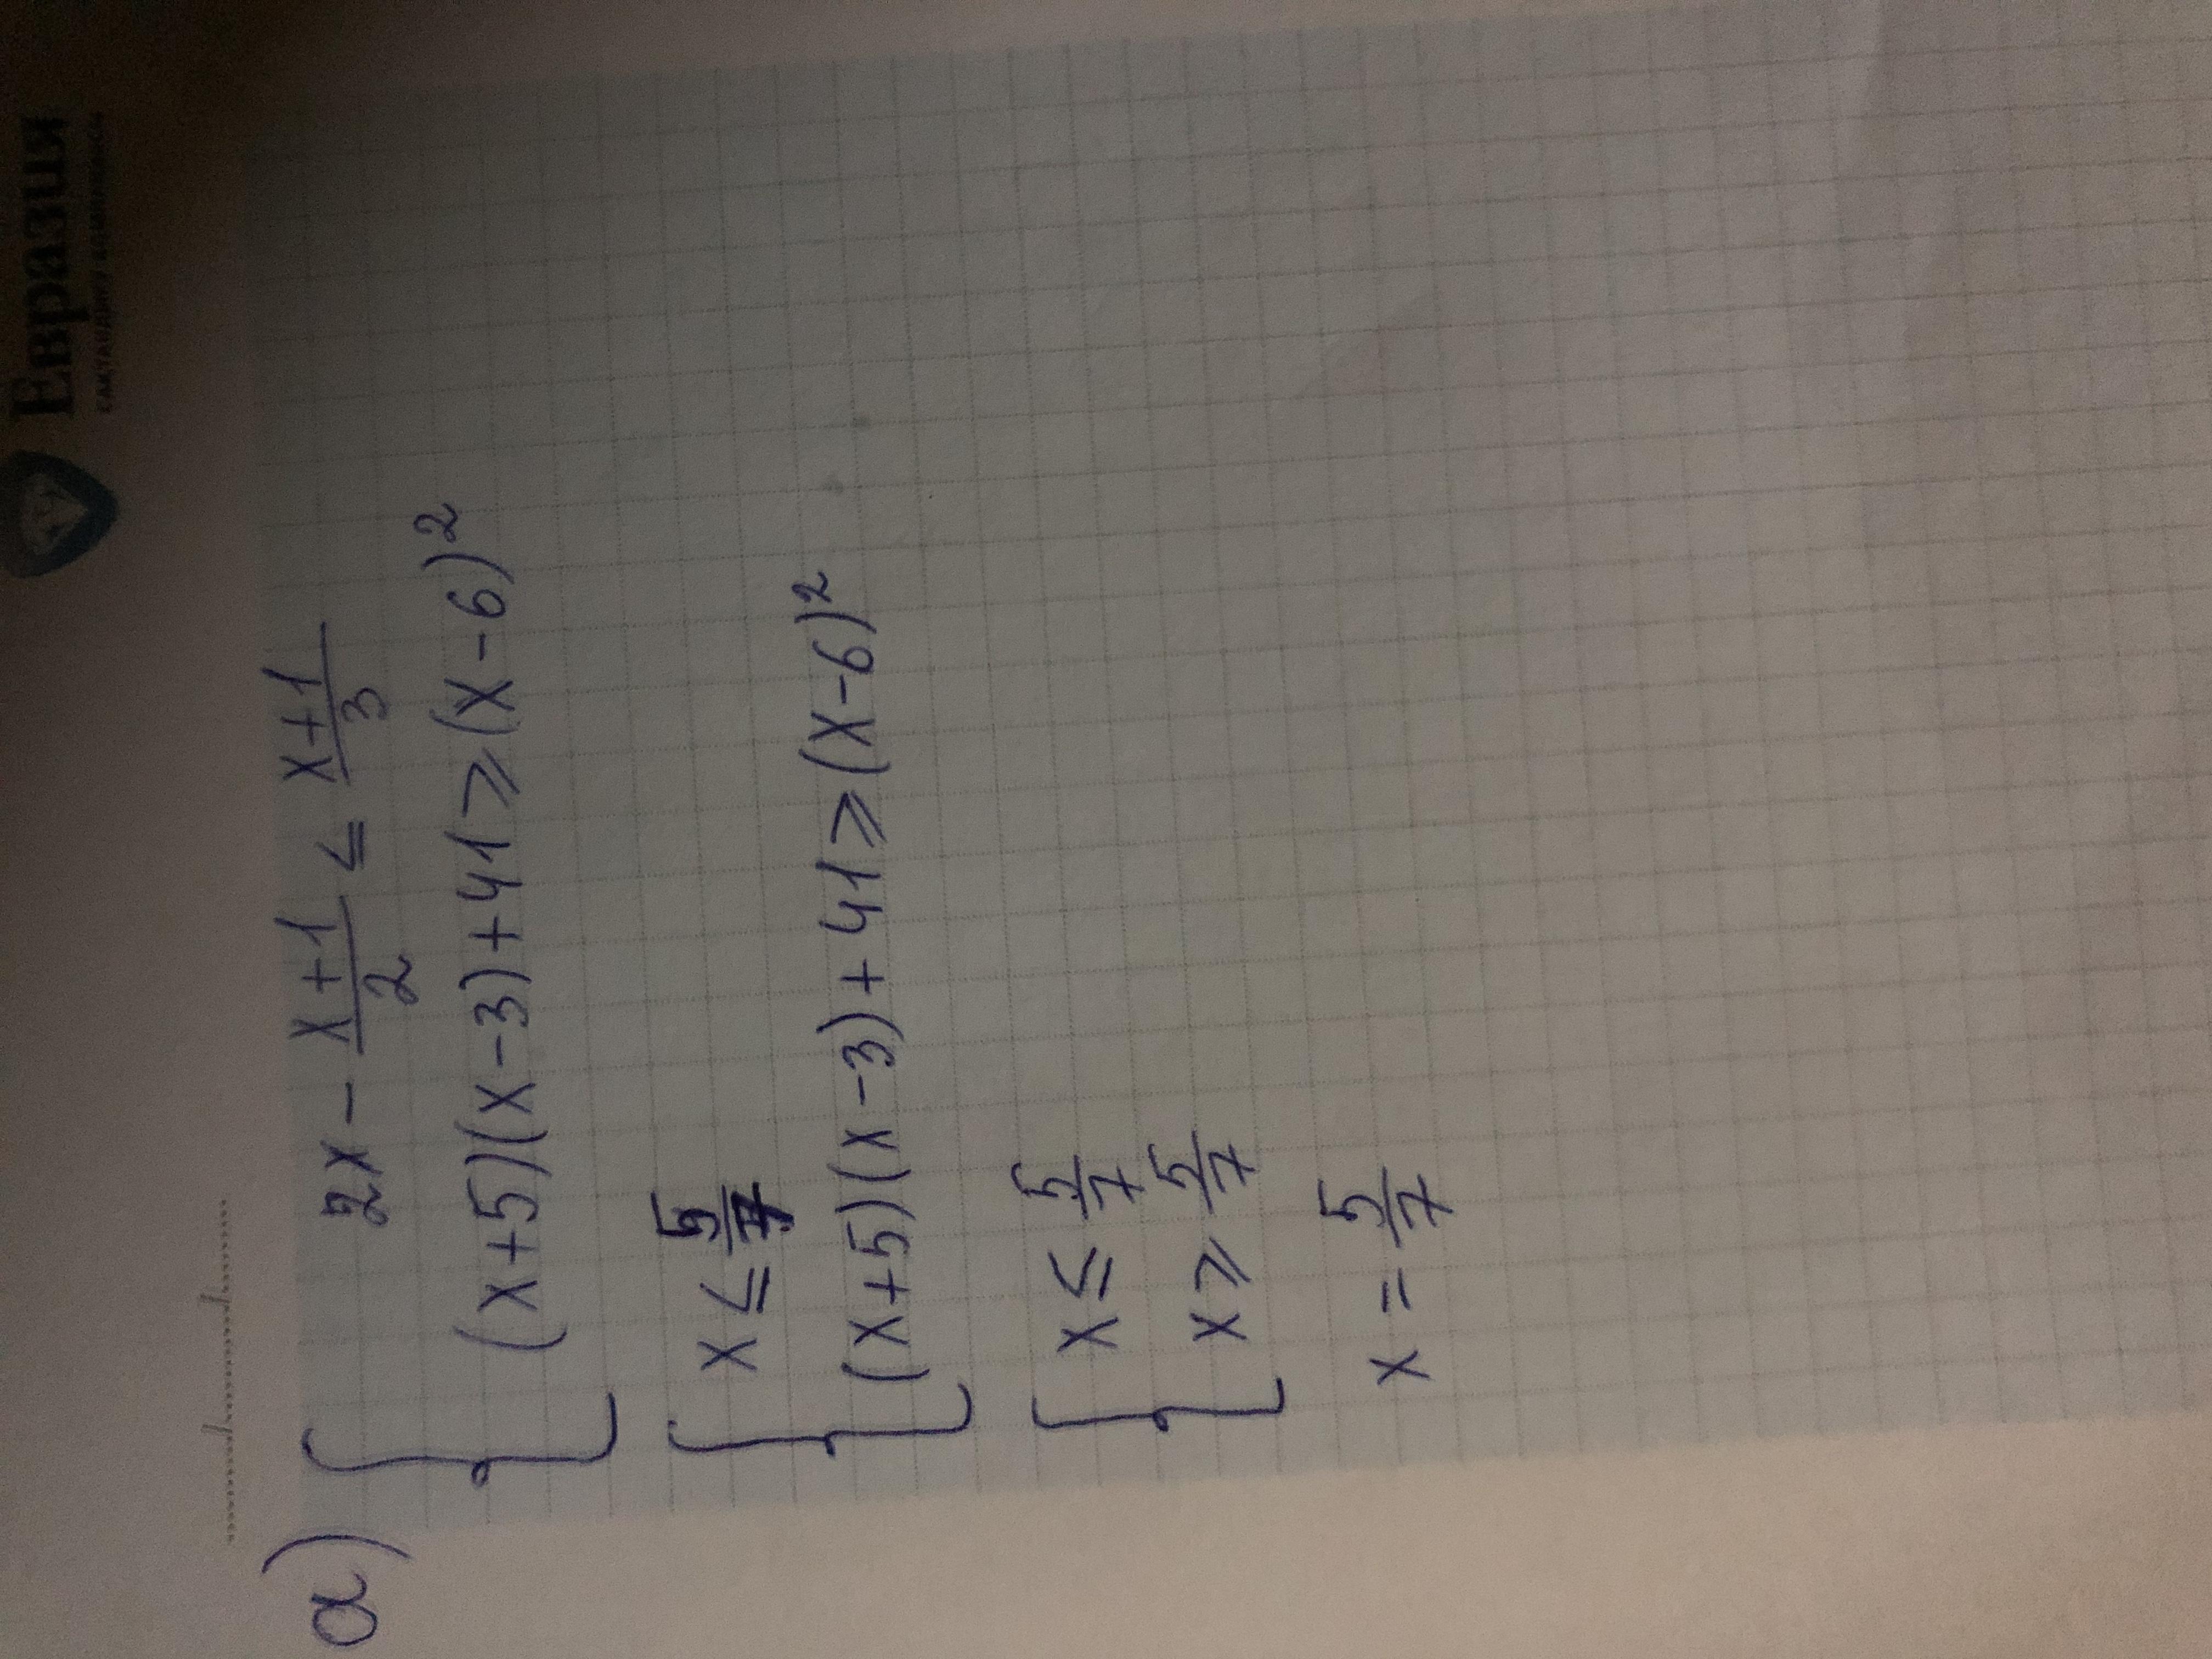 Евразия
а)
2x - \frac{x+1}{2} ≤ \frac{x+1}{3}
(x+5)(x-3)+41 ≥ (x-6)²
x ≤ \frac{5}{7}
(x+5)(x-3)+41 ≥ (x-6)²
x ≤ \frac{5}{7}
x ≥ \frac{5}{7}
x = \frac{5}{7}